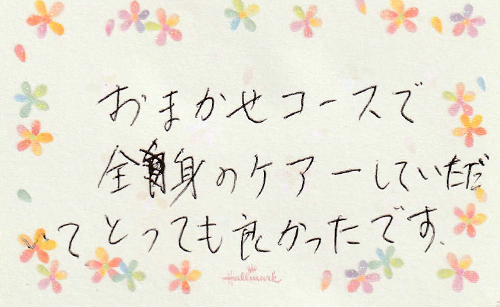 おまかせコースで
全身のケアーしていただ
いてとっても良かったです.
Hallmark